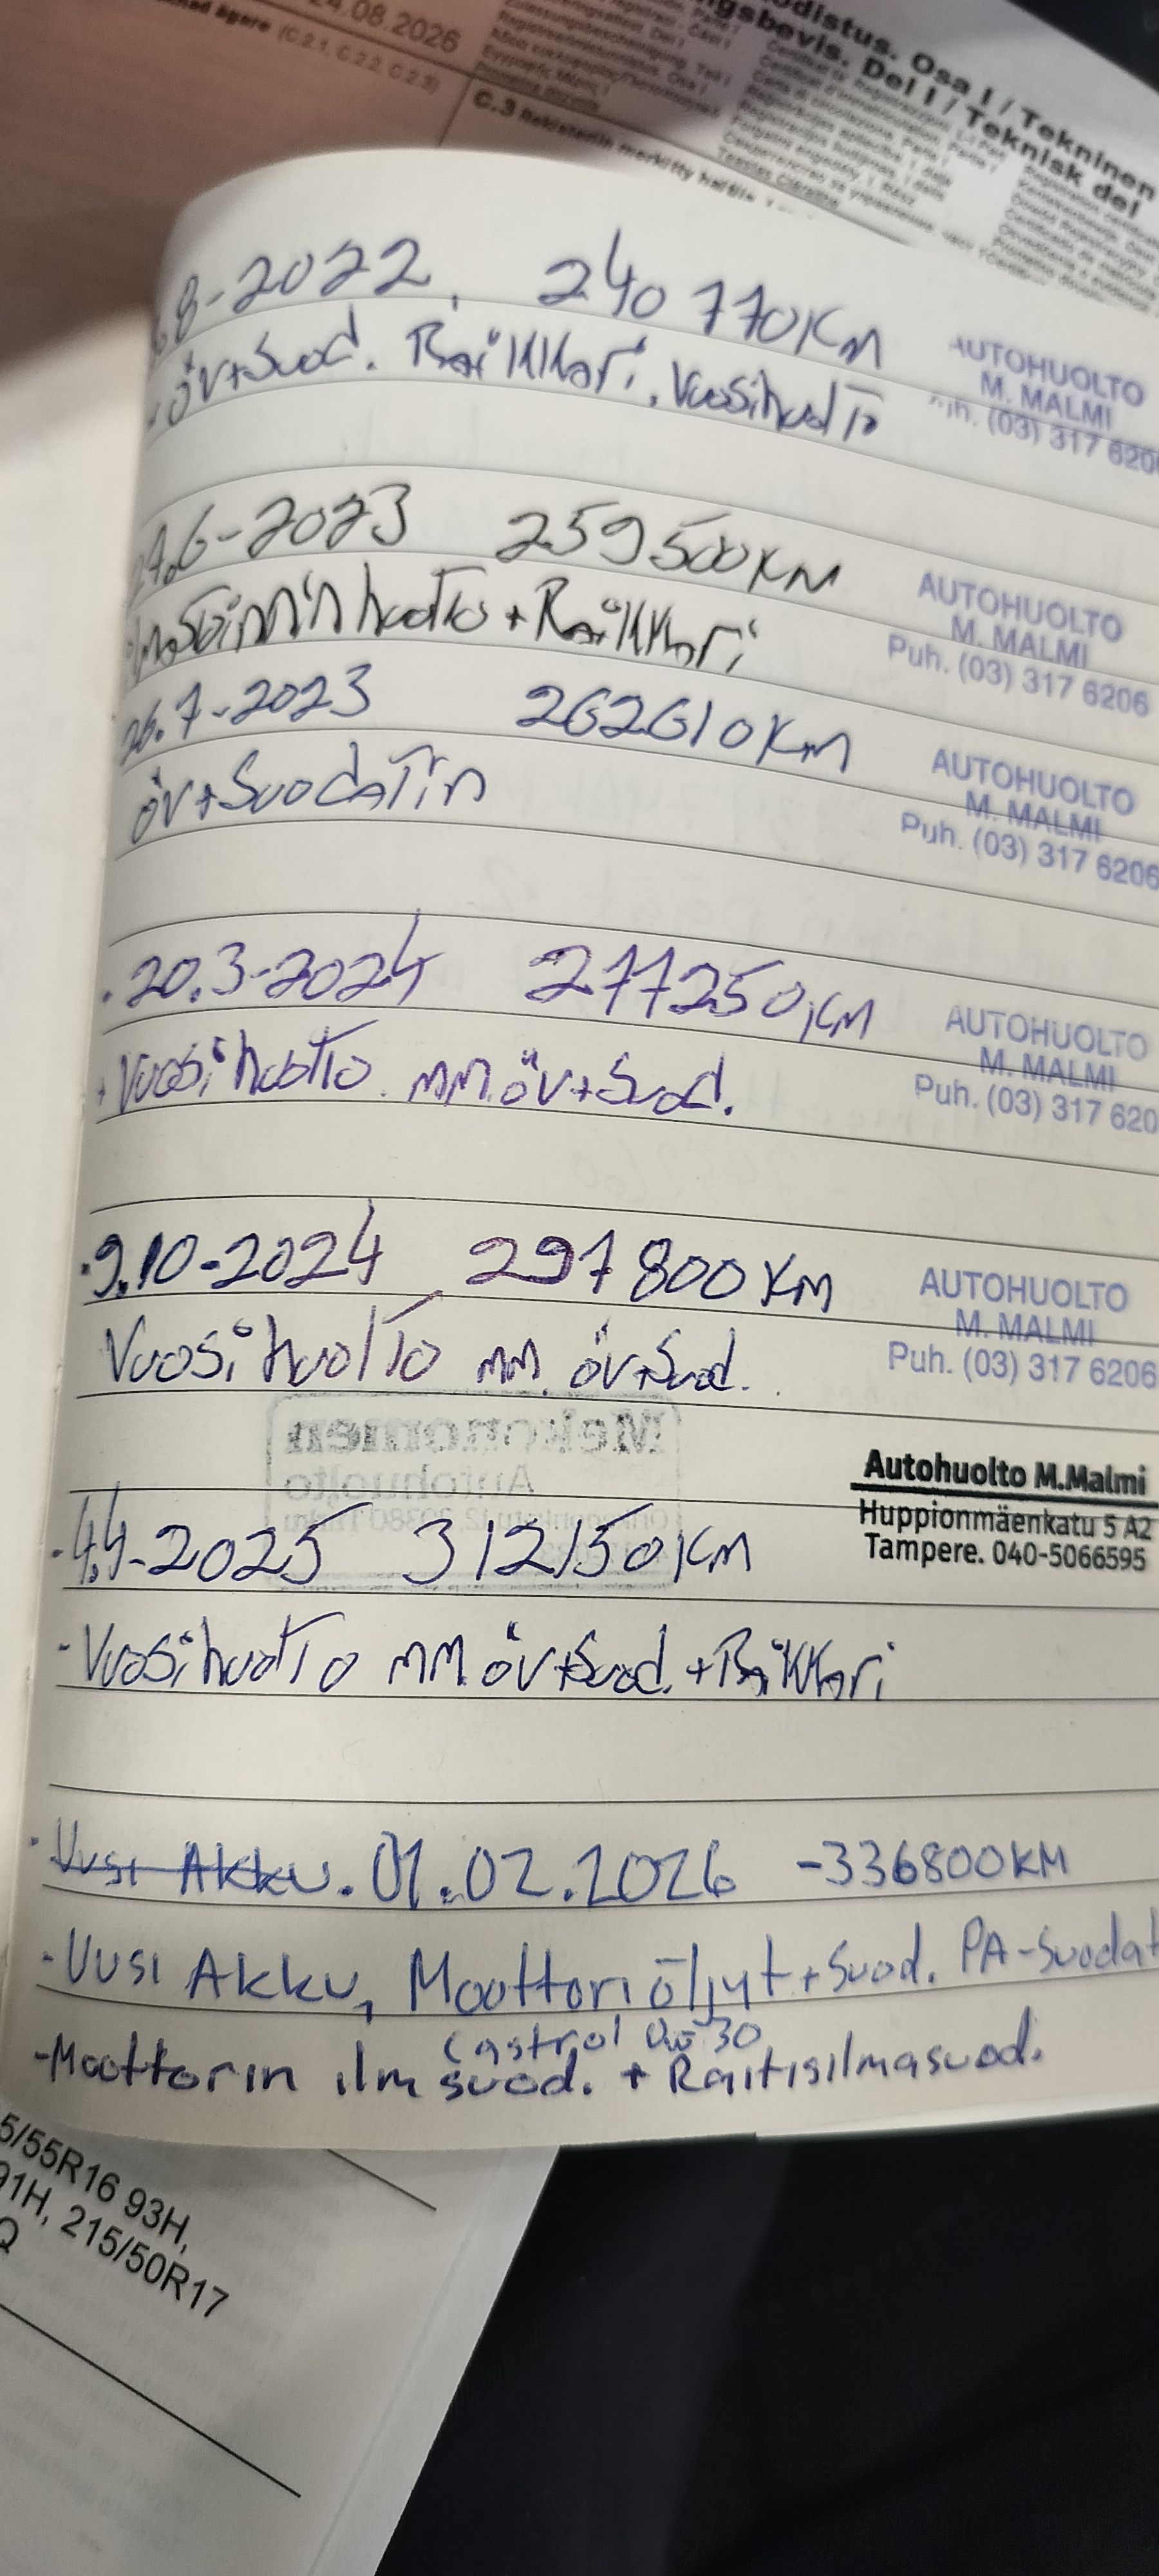 24.08.2026
(C.2.1, C.2.2, C.2.3)
C.3 Rekisteriin merkitty haltija
Osa I / Tekninen
Del I / Teknisk del
8-2022, 240 770KM
AUTOHUOLTO
M. MALMI
(03) 317 620
- öv+Suod. Raikkari, Vuosihuolto
6-2023 259500KM
AUTOHUOLTO
M. MALMI
Puh. (03) 317 6206
ilmastoinnin huolto + Raikkari
26.7-2023 262610KM
AUTOHUOLTO
M. MALMI
Puh. (03) 317 6206
öv+Suodatin
. 20.3-2024 277250KM
AUTOHUOLTO
M. MALMI
Puh. (03) 317 620
. Vuosihuolto mm. öv+Suod.
. 9.10-2024 297800KM
AUTOHUOLTO
M. MALMI
Puh. (03) 317 6206
Vuosihuolto mm. öv+Suod.
Mekonomen
Autohuolto
Autohuolto M.Malmi
Huppionmäenkatu 5 A2
Tampere. 040-5066595
- 4.4-2025 312150KM
- Vuosihuolto mm. öv+Suod. + Raikkari
. Uusi Akku. 01.02.2026 -336800KM
- Uusi Akku, Moottoriöljyt+Suod. PA-Suodat
Castrol 0w30
- Moottorin ilmsuod. + Raitisilmasuod.
5/55R16 93H,
91H, 215/50R17
Q